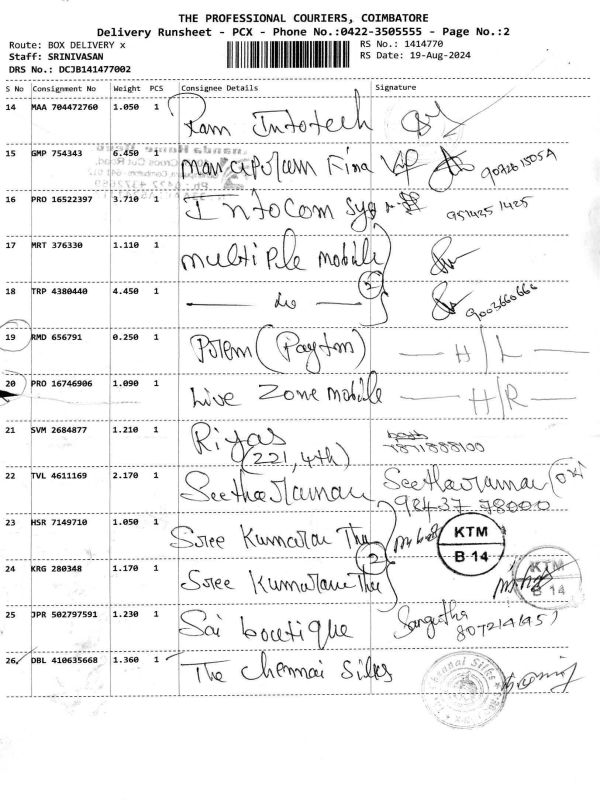 THE PROFESSIONAL COURIERS, COIMBATORE
Delivery Runsheet - PCX - Phone No.:0422-3505555 - Page No.:2
Route: BOX DELIVERY x
RS No.: 1414770
Staff: SRINIVASAN
RS Date: 19-Aug-2024
DRS No.: DCJB141477002
S No Consignment No Weight PCS Consignee Details Signature
14 MAA 704472760 1.050 1 Ram Infotech
15 GMP 754343 6.450 1 Manapuram Fina
16 PRO 16522397 3.710 1 Infocom Sys 951425 1425
17 MRT 376330 1.110 1 multiple mobile
2
18 TRP 4380440 4.450 1 — do — 9003660666
19 RMD 656791 0.250 1 Poem (Paytm) — H/L —
20 PRO 16746906 1.090 1 Live Zone mobile — H/R —
21 SVM 2684877 1.210 1 Riyas 7871888100
(221, 4th)
22 TVL 4611169 2.170 1 Seetharaman Seetharaman
98437 78000
23 HSR 7149710 1.050 1 Sree Kumaran Tha
KTM
B-14
2
24 KRG 280348 1.170 1 Sree Kumaran Tha
KTM
B 14
25 JPR 502797591 1.230 1 Sai boutique Sangitha
26 DBL 410635668 1.360 1 The Chennai Silks